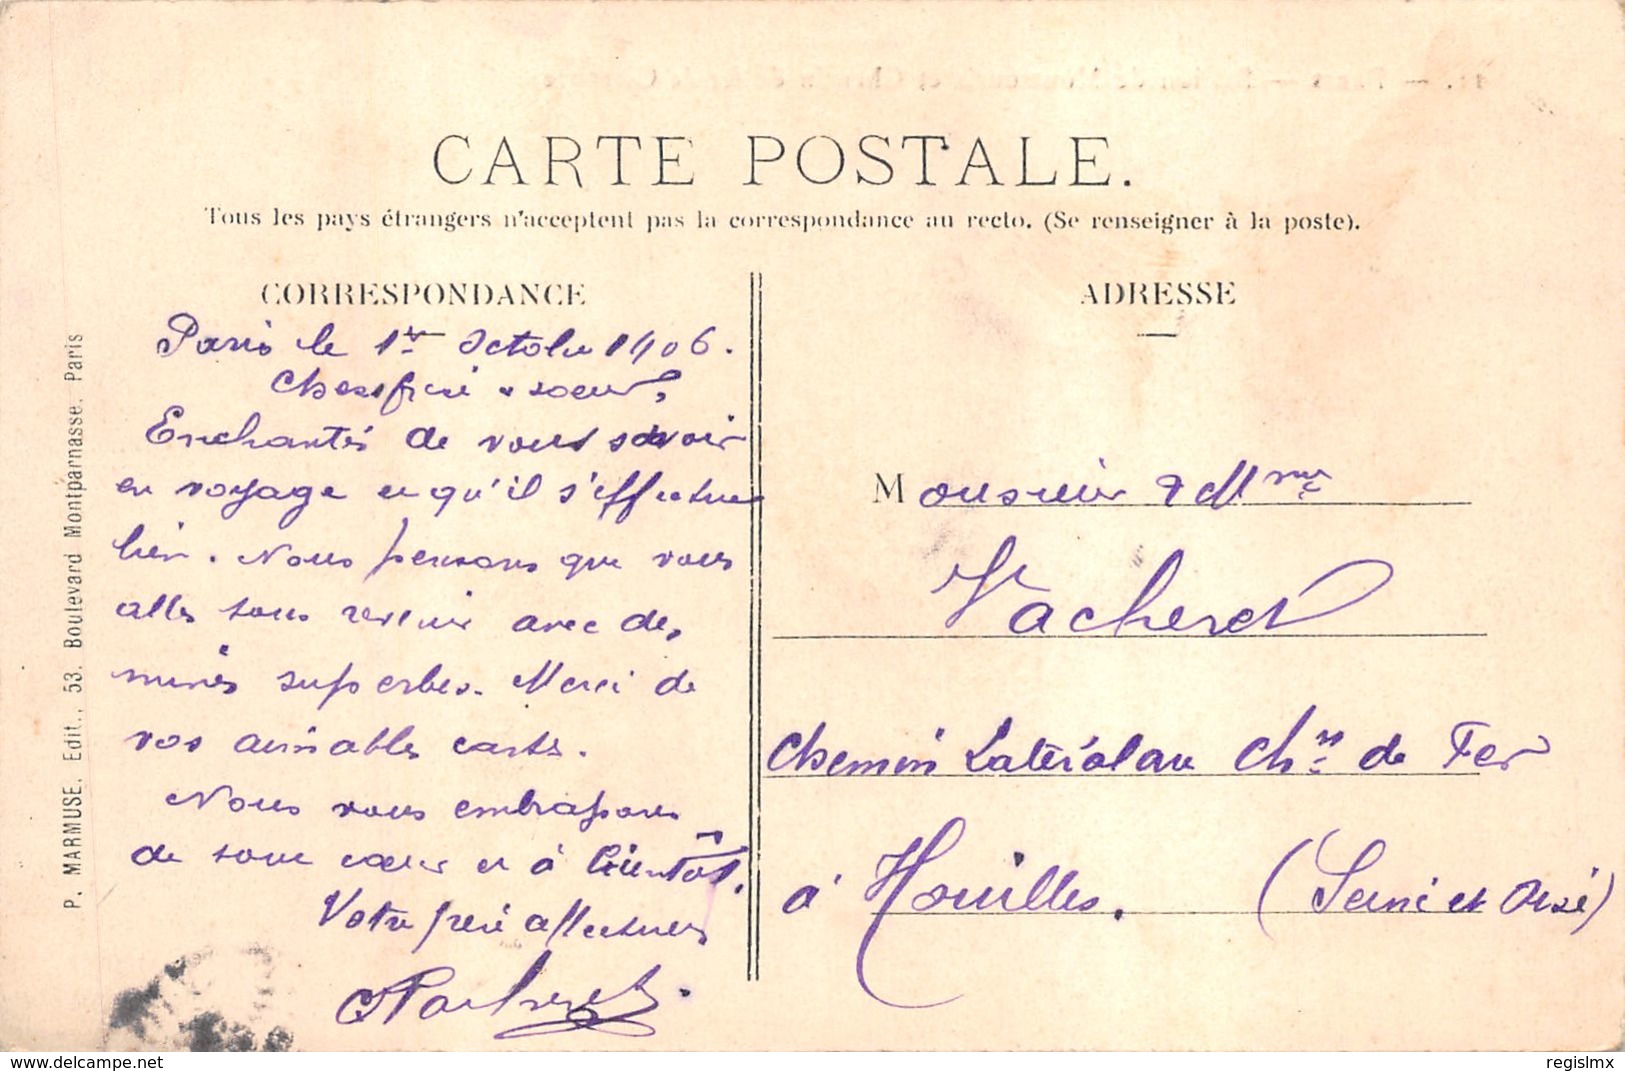 CARTE POSTALE.
Tous les pays étrangers n'acceptent pas la correspondance au recto. (Se renseigner à la poste).
CORRESPONDANCE
Paris le 1er Octobre 1906.
Chers frère & soeur,
Enchantés de vous savoir
en voyage et qu'il s'effectue
bien. Nous pensons que vous
allez tous revenir avec des
mines superbes. Merci de
vos aimables cartes.
Nous vous embrassons
de tout coeur et à bientôt.
Votre frère affectueux
Vacheret.
ADRESSE
Monsieur & Mme
Vacheret
Chemin Latéral au Chin de Fer
à Houilles. (Seine et Oise)
P. MARMUSE. Edit., 53. Boulevard Montparnasse. Paris
delcampe.net
regislmx